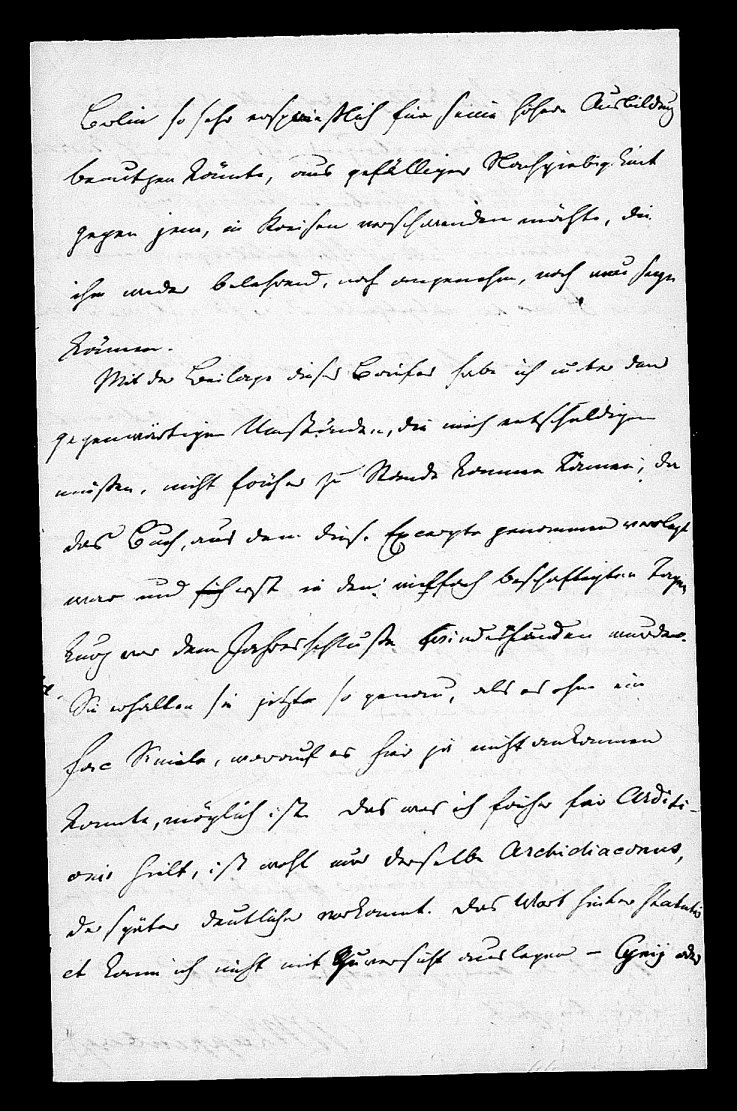 Berlin so sehr ersprießlich für seine höhere Ausbildung
benutzen könnte, aus gefälliger Nachgiebigkeit
gegen jene, in Kreisen verschwenden möchte, die
ihm weder belehrend, noch angenehm, noch neu seyn
können.
Mit der Beilage dieses Briefes habe ich unter den
gegenwärtigen Umständen, die mich entschuldigen
müssen, nicht früher zu Stande kommen können, da
das Buch, aus dem diese Excerpte genommen verlegt
war und sich erst in den vielfach beschäftigten Tagen
kurz vor dem Jahresschluße wiedergefunden wurde.
Sie erhalten sie jetzt so genau, als es ohne ein
fac Simile, worauf es hier ja nicht ankommen
konnte, möglich ist. Das was ich früher für Arditi-
onis hielt, ist wohl nur derselbe Archidiaconus,
der später deutlicher vorkommt. Das Wort hinter Statutis
et kann ich nicht mit Zuversicht auslegen – oder